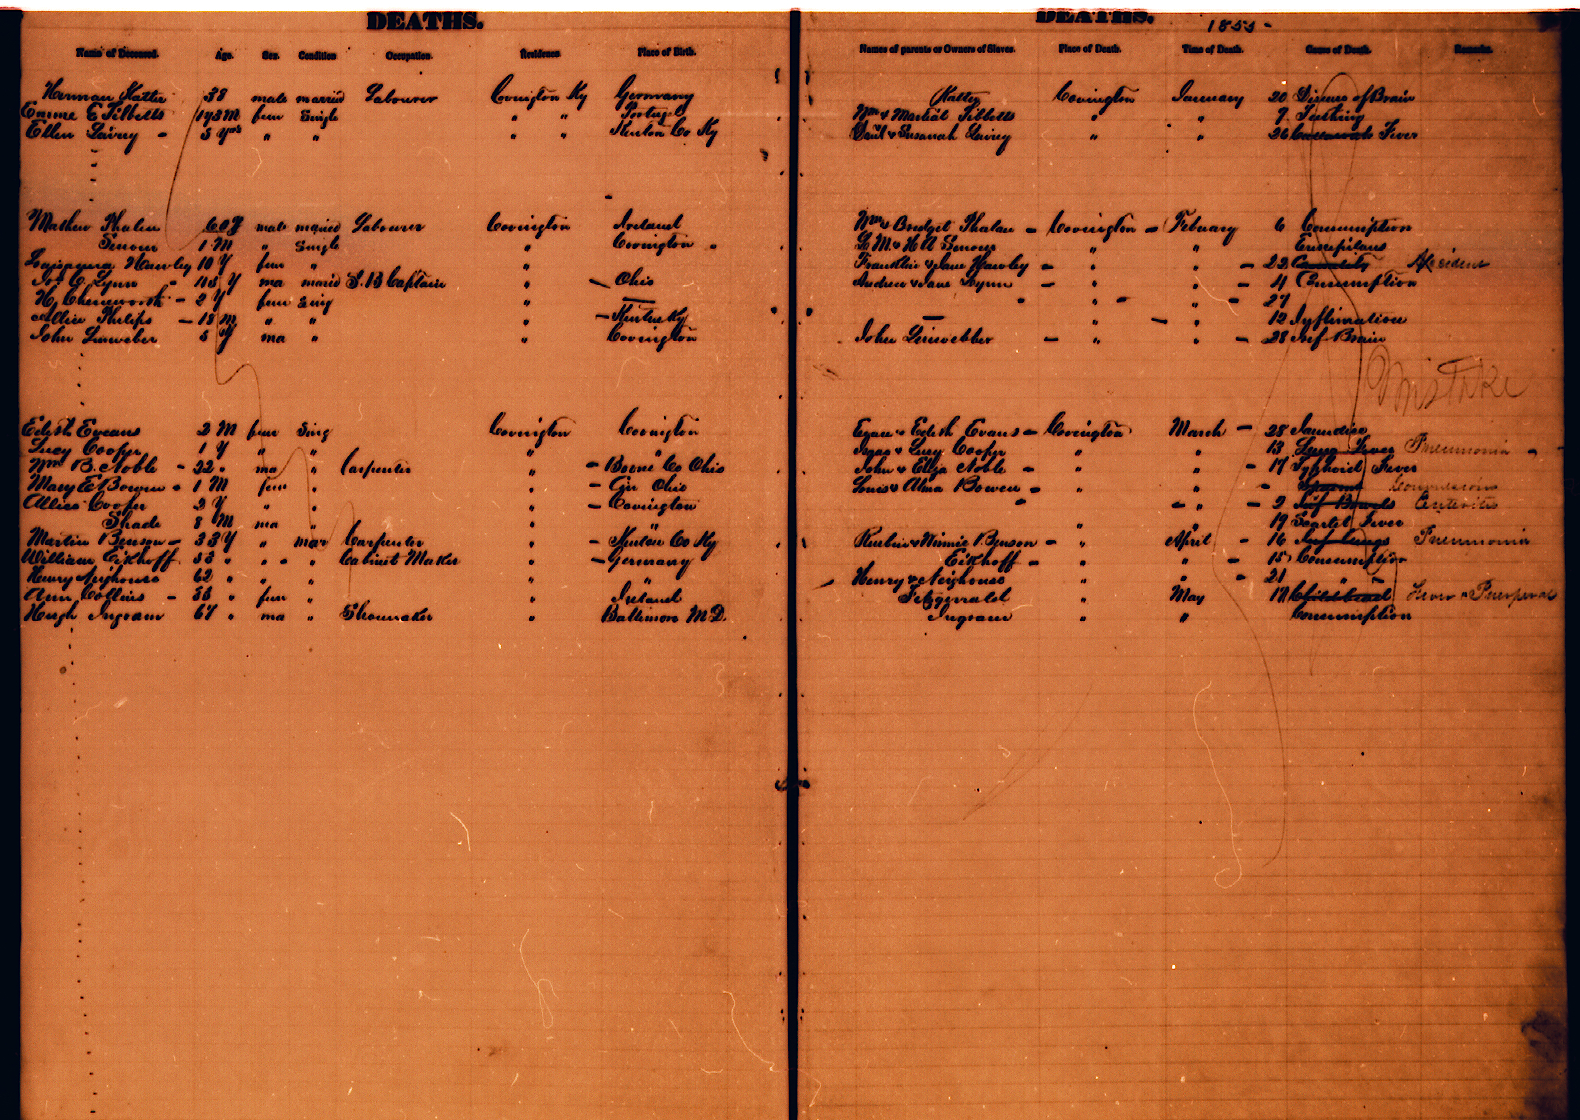 DEATHS.
Name of Deceased. Age. Sex. Condition Occupation. Residence Place of Birth.
Herman Katter 38 male married Labourer Covington Ky Germany
Emma E Tibbetts fem Single " " Portugal
Ellen 5 yrs " " " " Kenton Co Ky
Mathew Phalen 60 Y male married Labourer Covington Ireland
Simons 1 M " Single " Covington
Hawley 10 Y fem " "
Jos C. Lynn Y ma maried S.B Captain " Ohio
H. Chenoworth 2 Y fem Sing "
Allice Philips 18 M " " " Kentucky
John 5 Y ma " " Covington
Edith Evans 2 M fem Sing Covington Covington
Lucy Cooper 1 Y " " " "
Wm B. Noble 32 " ma " Carpenter " Co Ohio
Mary E Bowen 1 M fem " " Cin Ohio
Allice Cooper 2 Y " " " Covington
Shade 8 M ma " "
Martin Benson 33 Y " mar Carpenter " Kenton Co Ky
William Eickhoff 53 " " " Cabinet Maker " Germany
Henry Neighouse 62 " " " " "
Ann Collins 33 " fem " " Ireland
Hugh Ingram 67 " ma " Shoemaker " Baltimore M.D.
DEATHS. 1855-
Names of parents or Owners of Slaves. Place of Death. Time of Death. Cause of Death. Remarks.
Katter Covington January 20 Disease of Brain
Wm & Tibbetts " " 7 Teething
& Susanah " " 26 Fever
Wm & Bridget Phalan Covington February 6 Consumption
G. M. & H A Simons " " Erisipilas
Franklin & Jane Hawley " " 22 Accident
Andrew & Jane Lynn " " 4 Consumption
" " " 27
" " 12 Inflimation
John " " 28 Inf Brain
Mistake
& Edith Evans Covington March 28 Jaundice
& Lucy Cooper " " 13 Lung Fever Pneumonia
John & Eliza Noble " " 17 Typhoid Fever
Louis & Alma Bowen " "
" " " 2 Inf Bowels Enteritis
" " 19 Scarlet Fever
Reubin & Minnie Benson " April 16 Inf Lungs Pneumonia
Eickhoff " " 15 Consumption
Henry & Neighouse " " 21 " "
Fitzgerald " May 17 Childbed Fever Puerperal
Ingram " " Consumption